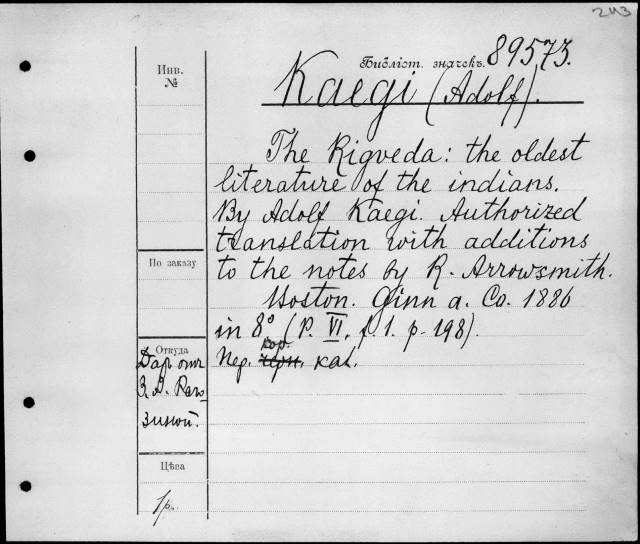 243
Библіот. значекъ. 89573.
Инв.
№
Kaegi (Adolf).
The Rigveda: the oldest
literature of the indians.
By Adolf Kaegi. Authorized
translation with additions
to the notes by R. Arrowsmith.
Boston. Ginn a. Co. 1886
in 8° (P. VI, f. 1. p. 198).
По заказу
Откуда
Пер. кол.
Даръ отъ
З.
зиной.
Цѣна
1р.